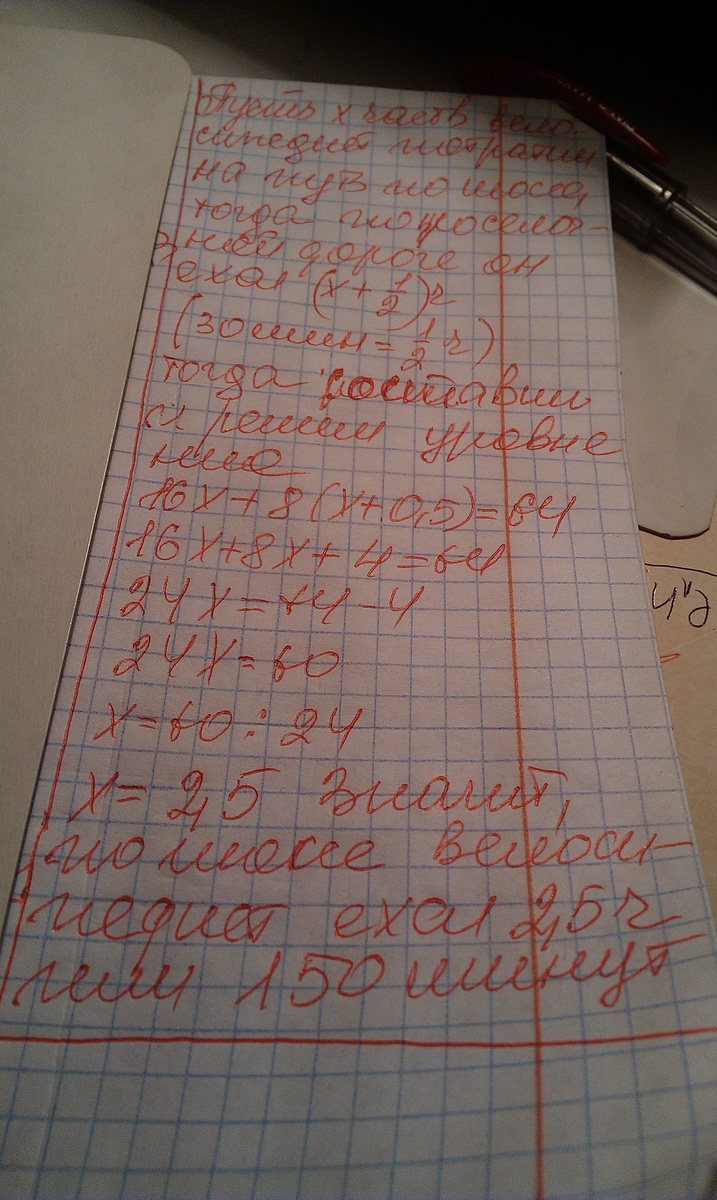 Пусть х часов вело-
сипедист потратил
на путь по шоссе,
тогда по проселоч-
ной дороге он
ехал (х + 1/2) ч
(30 мин = 1/2 ч)
тогда составим
и решим уравне
ние
16х + 8(х+0,5) = 64
16х+8х+4=64
24х=64-4
24х=60
х=60:24
х=2,5 Значит,
по шоссе велоси-
педист ехал 2,5 ч
или 150 минут